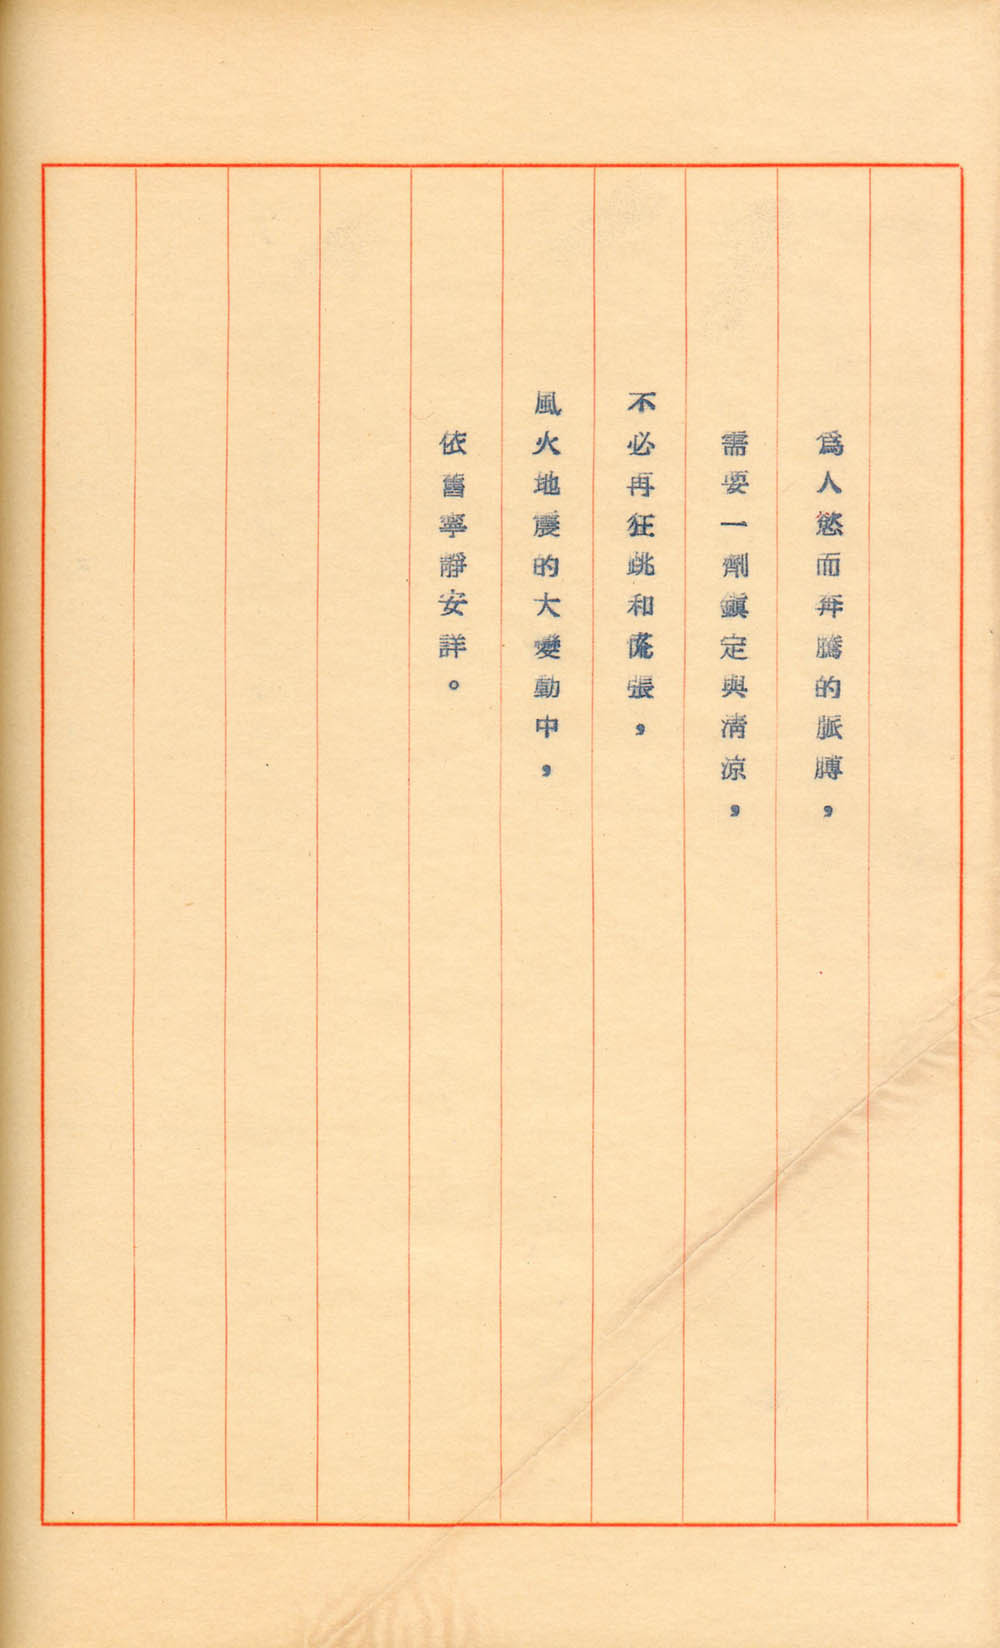 爲人慾而奔騰的脈膊，
需要一劑鎭定與淸涼，
不必再狂跳和慌張，
風火地震的大變動中，
依舊寧靜安詳。